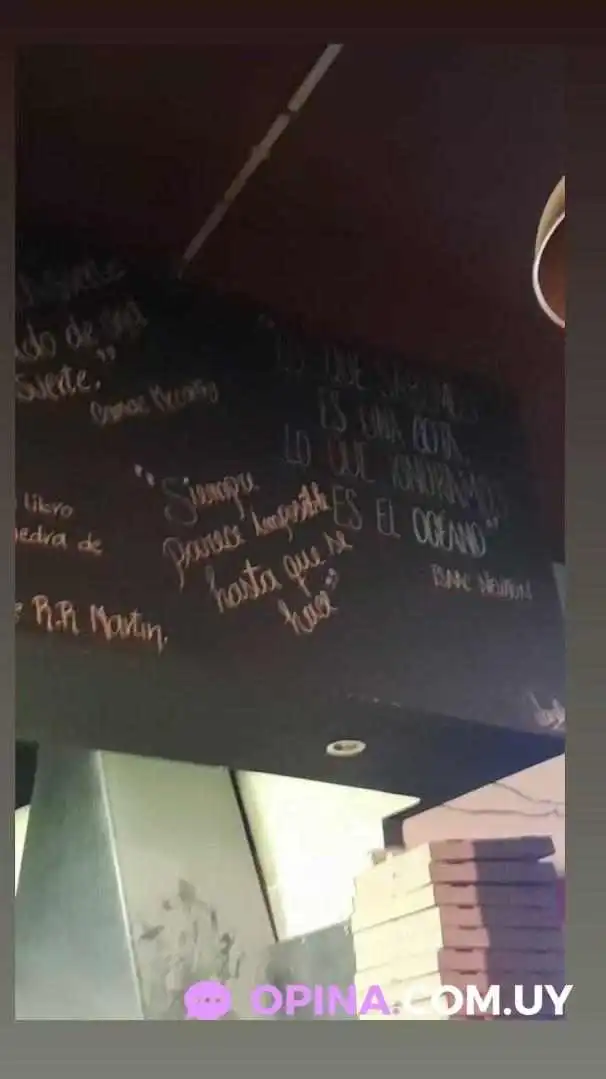 do de
suerte."
Cormac McCarthy
libro
edra de
R.R Martin.
"Siempre
parece imposible
hasta que se
hace"
"LO QUE SABEMOS
ES UNA GOTA,
LO QUE IGNORAMOS
ES EL OCÉANO"
ISAAC NEWTON
OPINA.COM.UY